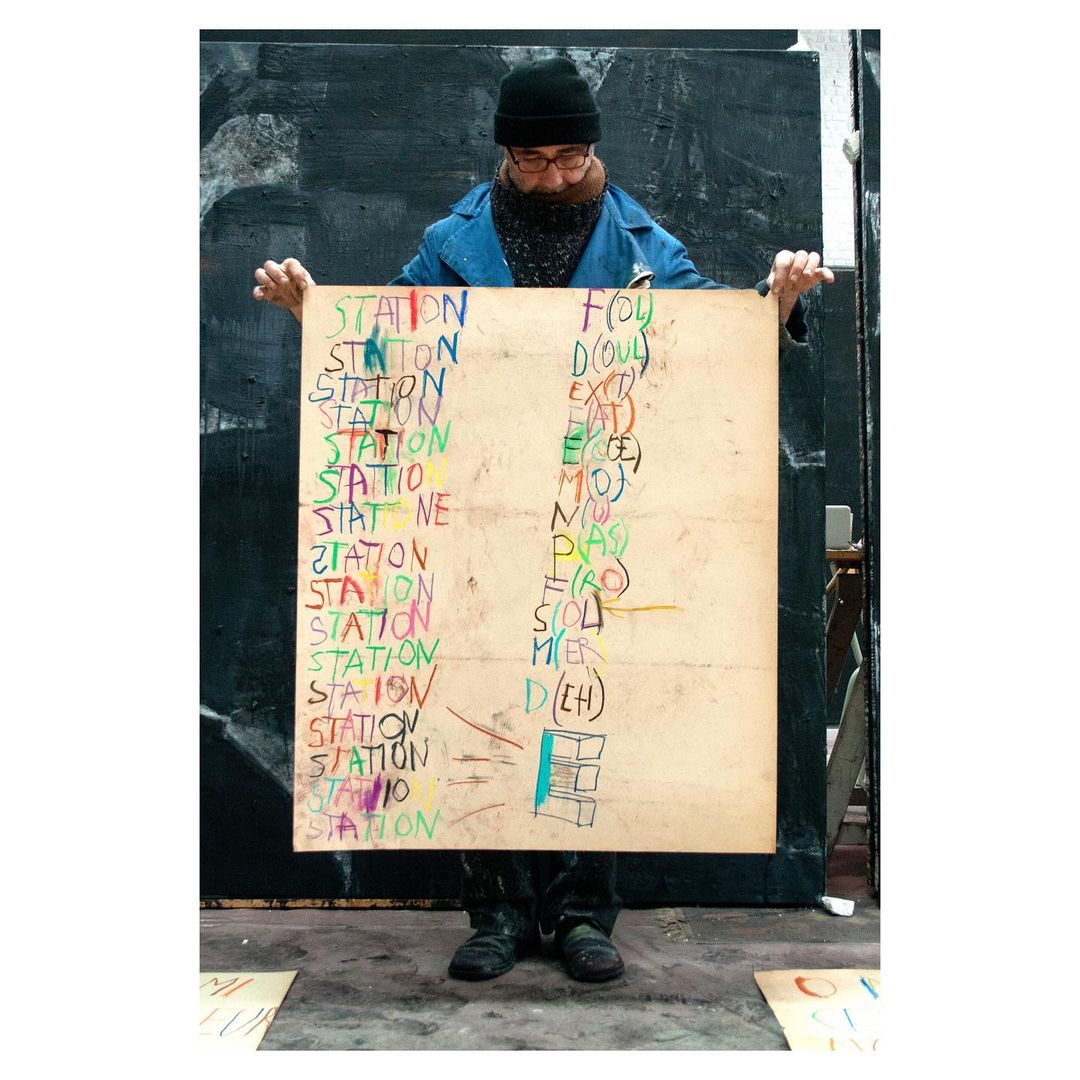 STATION
STATION
STATION
STATION
STATION
STATION
STATIONE
STATION
STATION
STATION
STATION
STATION
STATION
STATION
STATION
STATION
F(OL)
D(OUL)
EX(T)
F(AT)
M(O)
N(U)
P(AS)
F(RO)
S(OL)
M(ER)
D(EH)
MI
EUR